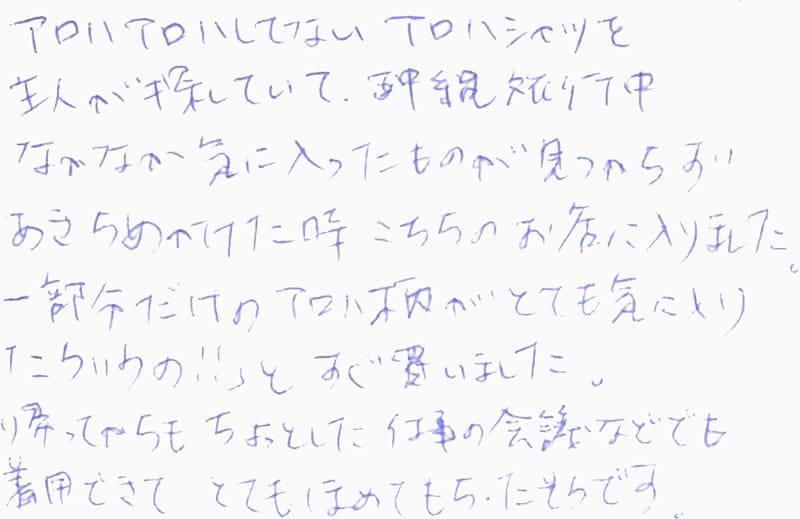 アロハアロハしてない アロハシャツを
主人が探していて、沖縄旅行中
なかなか気に入ったものが見つからず
あきらめかけた時 こちらのお店に入りました。
一部分だけのアロハ柄がとても気に入り
の!!」と すぐ買いました。
帰ってからもちょっとした仕事の会議などでも
着用できて とてもほめてもらったそうです。